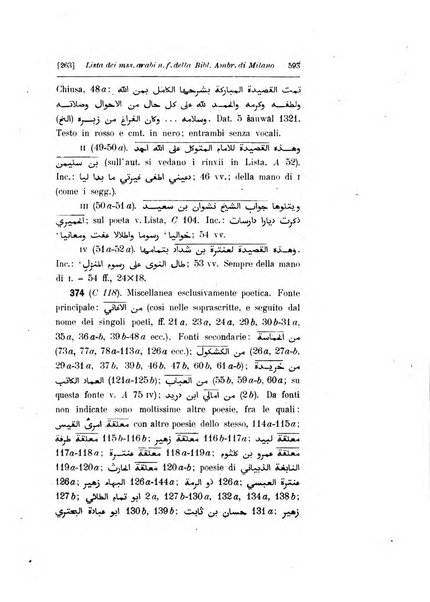 [263] Lista dei mss. arabi n. f. della Bibl. Ambr. di Milano 593
Chiusa, 48a: تمت القصيدة المباركة بشرحها بمن الله وكرمه
ولطفه وكرمه والحمد لله على كل حال من الاحوال
وسلامه ... وكان الفراغ من زبره (الخ). Dat. 5 šauwāl 1321.
Testo in rosso e cmt. in nero; entrambi senza vocali.
II (49-50a). وهذه القصيدة للامام المتوكل على الله احمد
بن سليمن (sull'aut. si vedano i rinvii in Lista, A 52).
Inc.: دعيني اطفي غيرتي ما بدا ليا; 46 vv.; della mano di I
(come i segg.).
III (50a-51a). ويتلوها جواب الشيخ نشوان بن سعيد
الحميري; sul poeta v. Lista, C 104. Inc.: ذكرت ديارا دارسات
رسوما واطلالا عفت ومغانيا; 54 vv.
IV (51a-52a). وهذه القصيدة لعنترة بن شداد بتمامها.
Inc.: طال الثوى على رسوم المنزل; 53 vv. Sempre della mano
di I. – 54 ff., 24×18.
374 (C 118). Miscellanea esclusivamente poetica. Fonte
principale: الاغاني (così nelle soprascritte, e seguito dal
nome dei singoli poeti, ff. 21a, 23a, 26a, 27a, 30b-31a,
35a, 36a-b, 39b-48a ecc.). Fonti secondarie: الحماسة
(73a, 77a, 78a-113a, 126a ecc.); من الكشكول (26a, 27a-b,
30a-31a, 42b, 46b, 47b, 48b, 60b, 61a-b); من خريدة
العماد الكاتب (121a-125b); من العباب (55b, 59a-b, 60a-b; su
questa fonte v. A 75 IV); من امالي ابن دريد. Da fonti
non indicate sono moltissime altre poesie, fra le quali:
معلقة امرئ القيس con altre poesie dello stesso, 114a-115a;
معلقة زهير 115b-116b; معلقة لبيد 116b-117a; معلقة طرفة
117a-118a; معلقة عمرو بن كلثوم 118a-119a; معلقة عنترة
119a-120a; معلقة الحارث 120a-b; poesie di النابغة الذبياني
126a; عنترة العبسي 126a; البهاء زهير 126b; ذو الرمة
127b; ابو تمام الطائي 2a, 127b, 130a; ابو عبادة البحتري
130b, 139b; حسان بن ثابت 131a; زهير